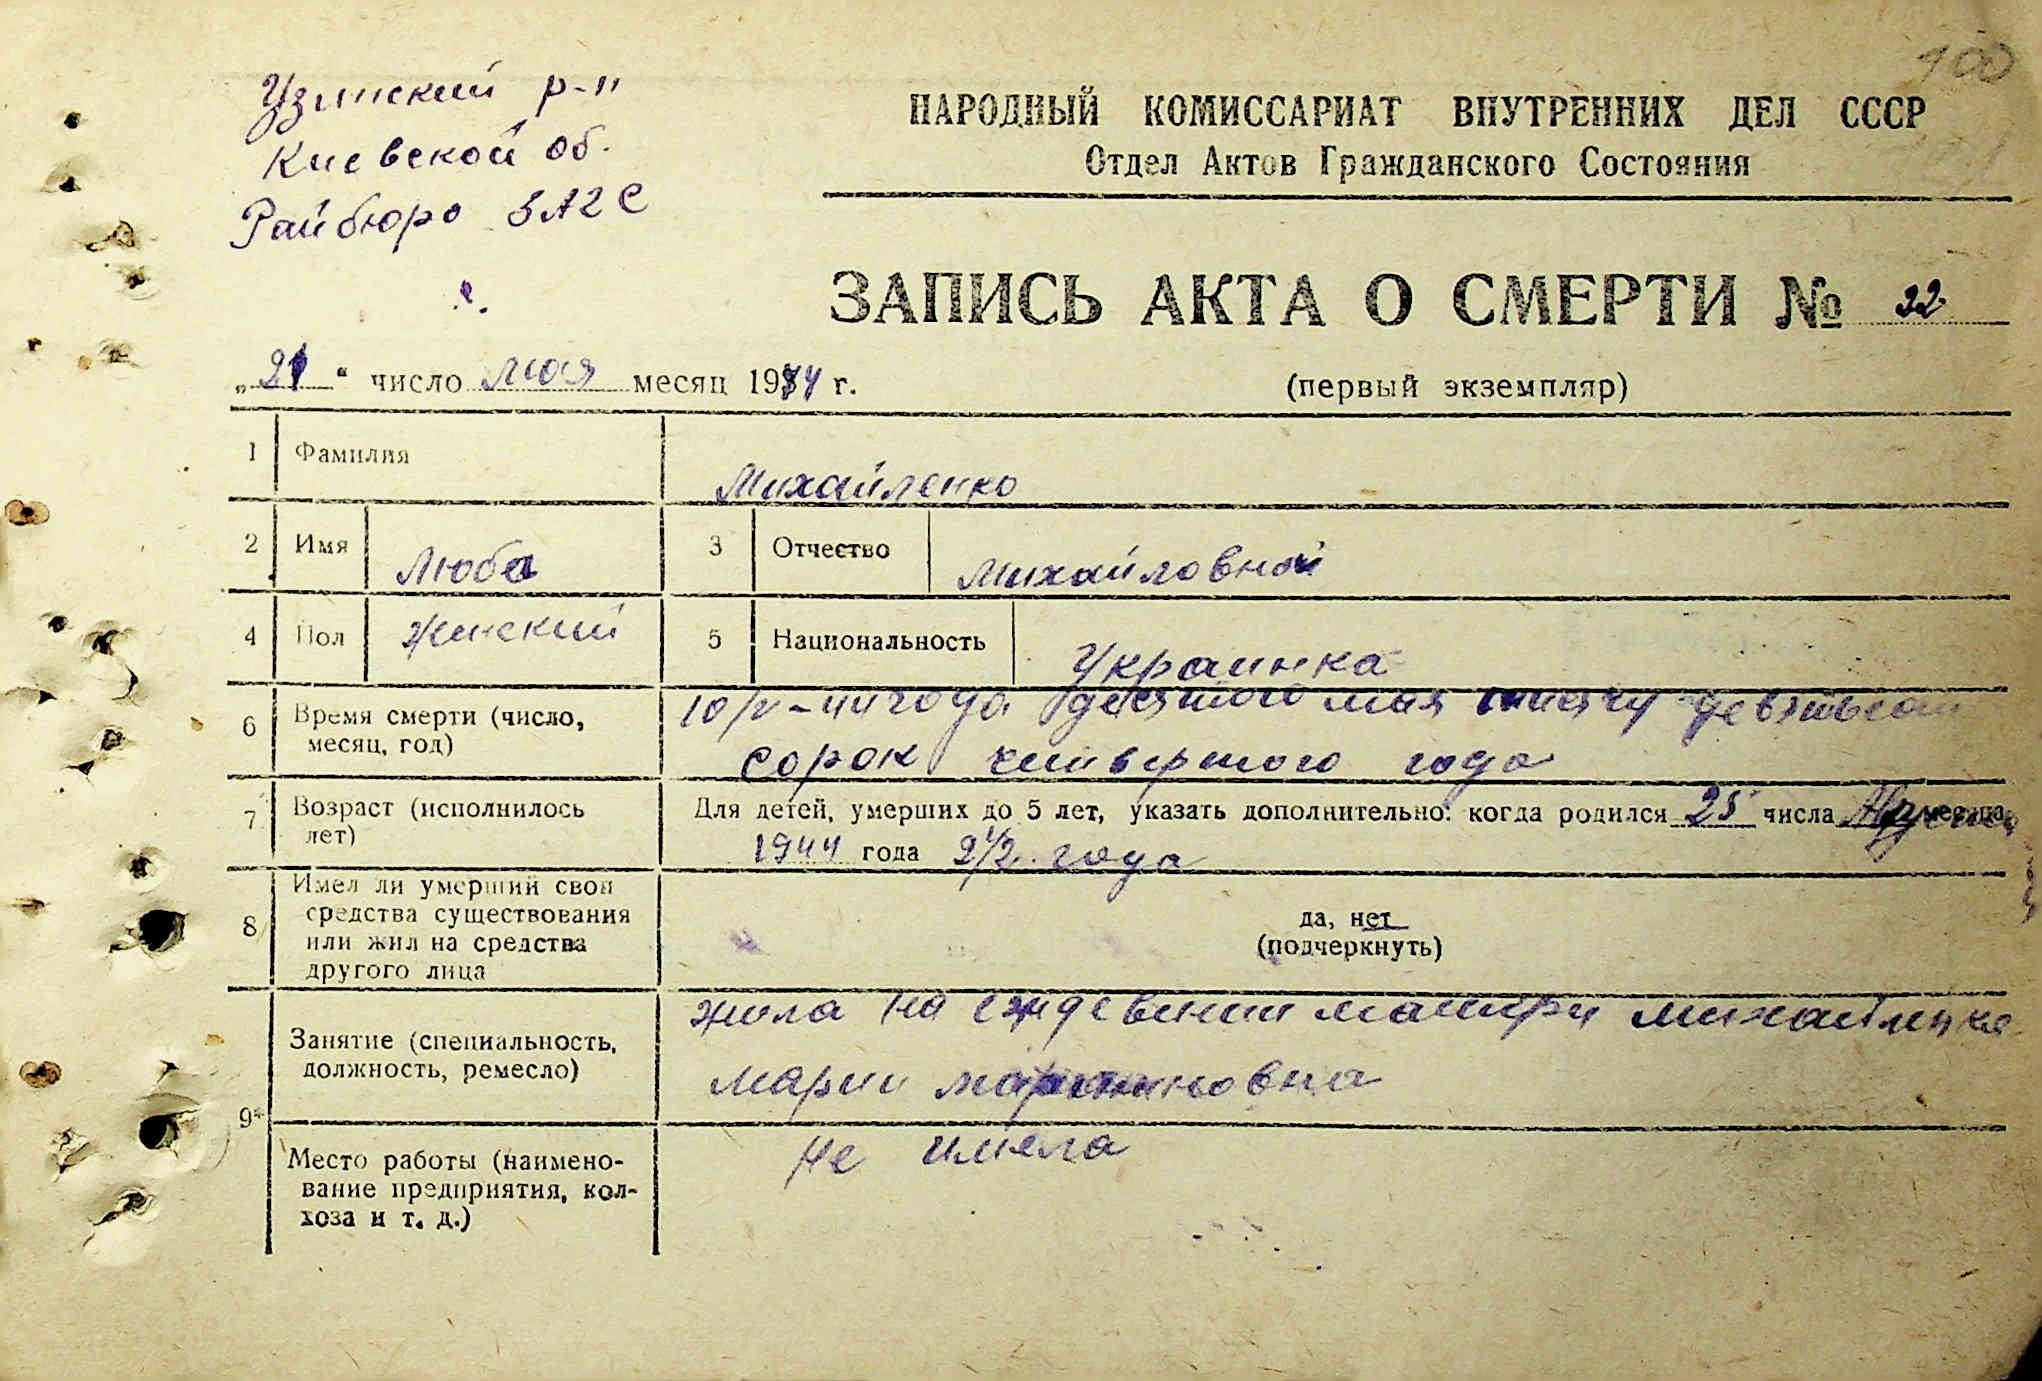 100
Узинский р-н
Киевской об.
Райбюро ЗАГС
НАРОДНЫЙ КОМИССАРИАТ ВНУТРЕННИХ ДЕЛ СССР
Отдел Актов Гражданского Состояния
ЗАПИСЬ АКТА О СМЕРТИ № 22
„21“ число мюя месяц 1944 г.
(первый экземпляр)
1 Фамилия Михайленко
2 Имя Люба 3 Отчество Михайловной
4 Пол Женский 5 Национальность Украинка
6 Время смерти (число, месяц, год)
десятого мая девятьсот
сорок четвертого года
7 Возраст (исполнилось лет)
Для детей, умерших до 5 лет, указать дополнительно: когда родился 25 числа месяца
1944 года 2 1/2 года
8 Имел ли умерший свои средства существования или жил на средства другого лица
да, нет
(подчеркнуть)
9* Занятие (специальность, должность, ремесло)
жила на матери Михайленко
Марии
Место работы (наименование предприятия, колхоза и т. д.)
не имела